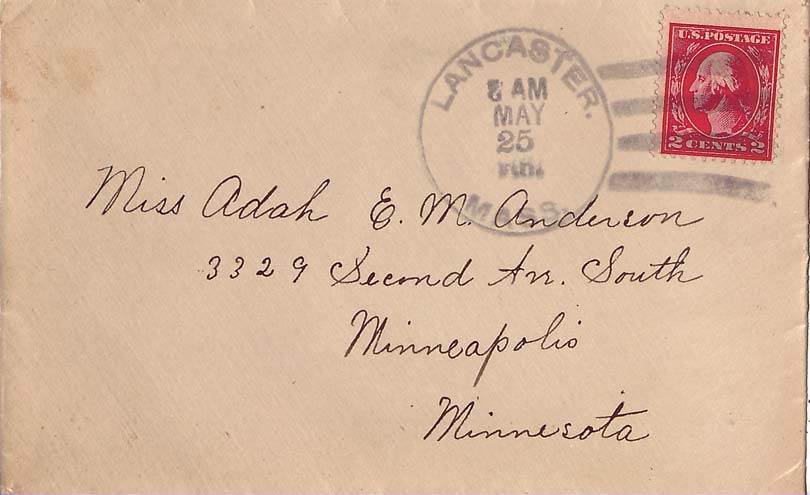 LANCASTER.
8 AM
MAY
25
MASS.
U.S. POSTAGE
2 CENTS 2
Miss Adah E. M. Anderson
3329 Second Ave. South
Minneapolis
Minnesota